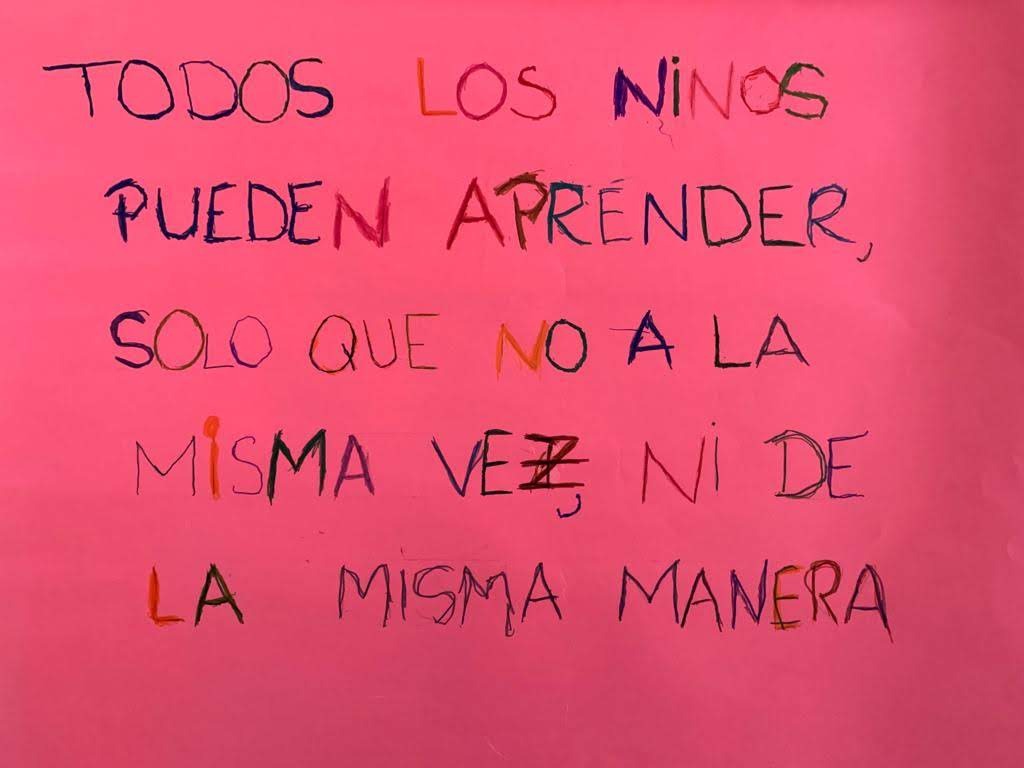 TODOS LOS NiNOS
PUEDEN APRENDER,
SOLO QUE NO A LA
MiSMA VEZ, Ni DE
LA MISMA MANERA